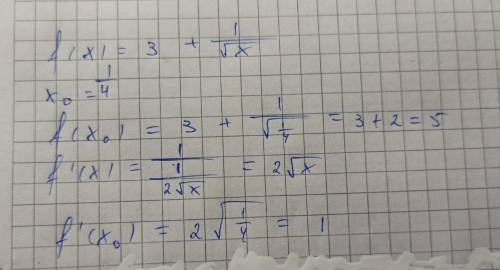 f(x) = 3 + 1/√x
x₀ = 1/4
f(x₀) = 3 + 1/√(1/4) = 3 + 2 = 5
f'(x) = 1/(1/(2√x)) = 2√x
f'(x₀) = 2√(1/4) = 1